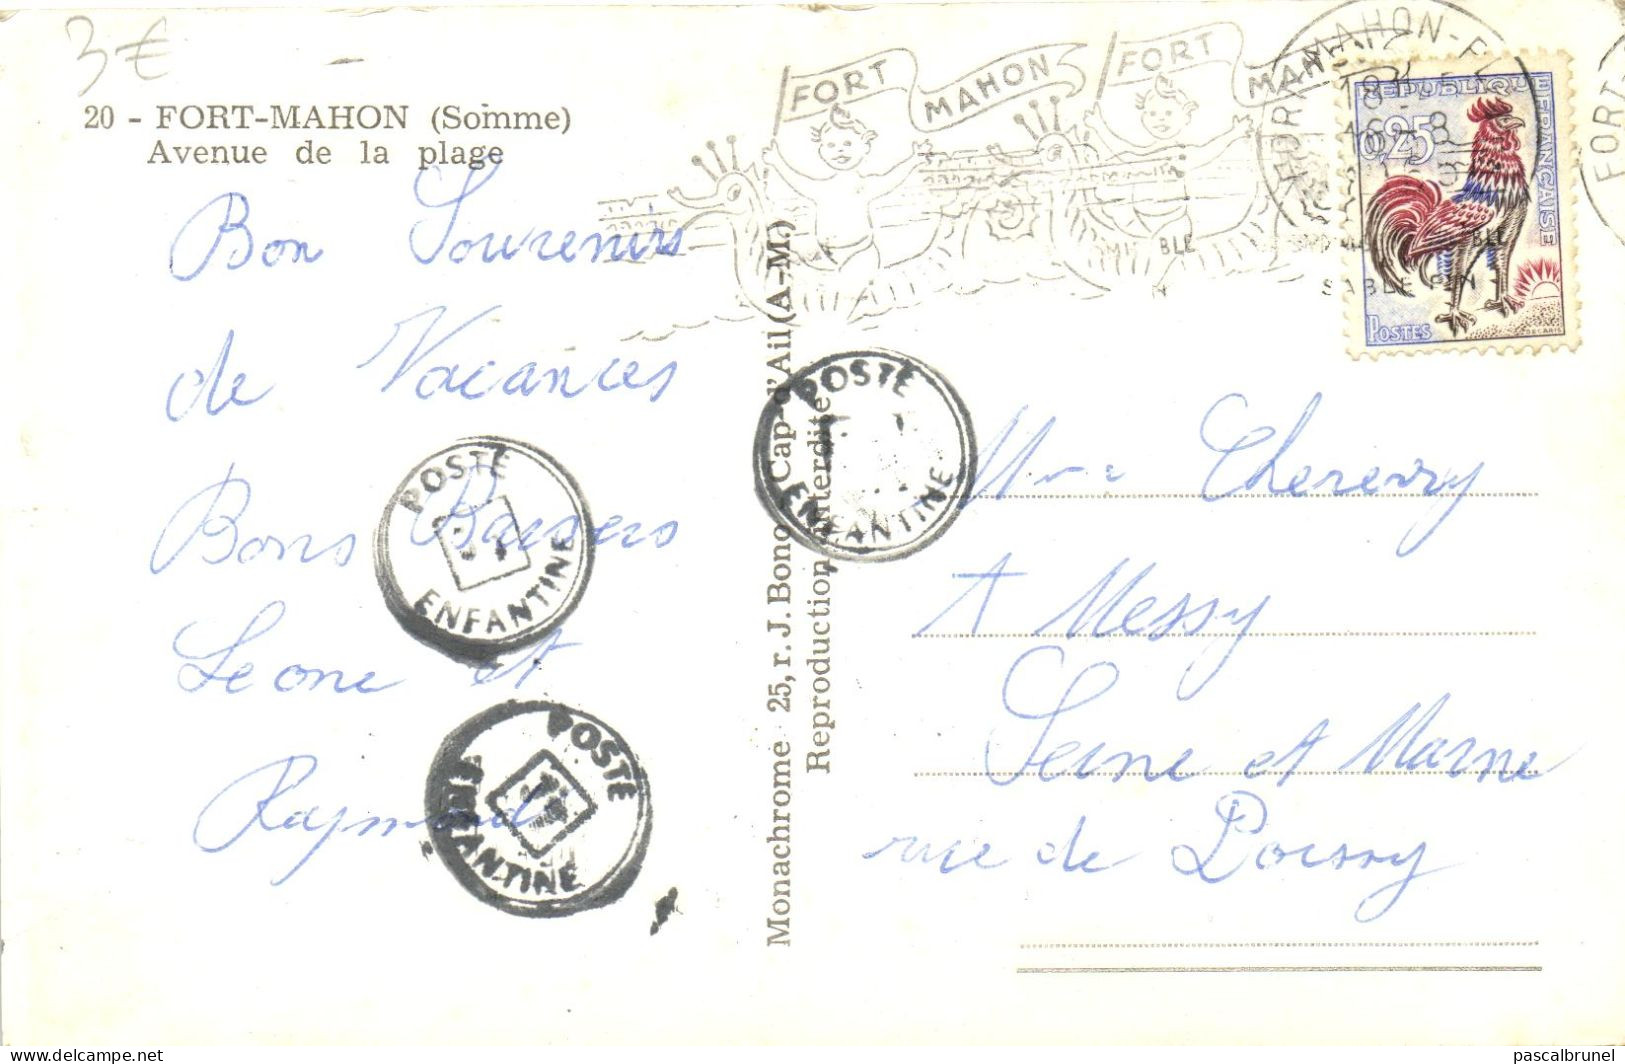 3€
20 - FORT-MAHON (Somme)
Avenue de la plage
Bon Souvenirs
de Vacances
Bons Baisers
Leone et
Raymond
Monachrome - 25, r. J. Bono Cap-d'Ail (A-M.)
Reproduction interdite
FORT MAHON
FORT MAHON
FORT MAHON-P
SABLE FIN
FORT
REPUBLIQUE FRANÇAISE
0,25
POSTES
DECARIS
POSTE
ENFANTINE
POSTE
ENFANTINE
POSTE
ENFANTINE
Mme Cherevry
A Messy
Seine et Marne
rue de Poissy
delcampe.net
pascalbrunel